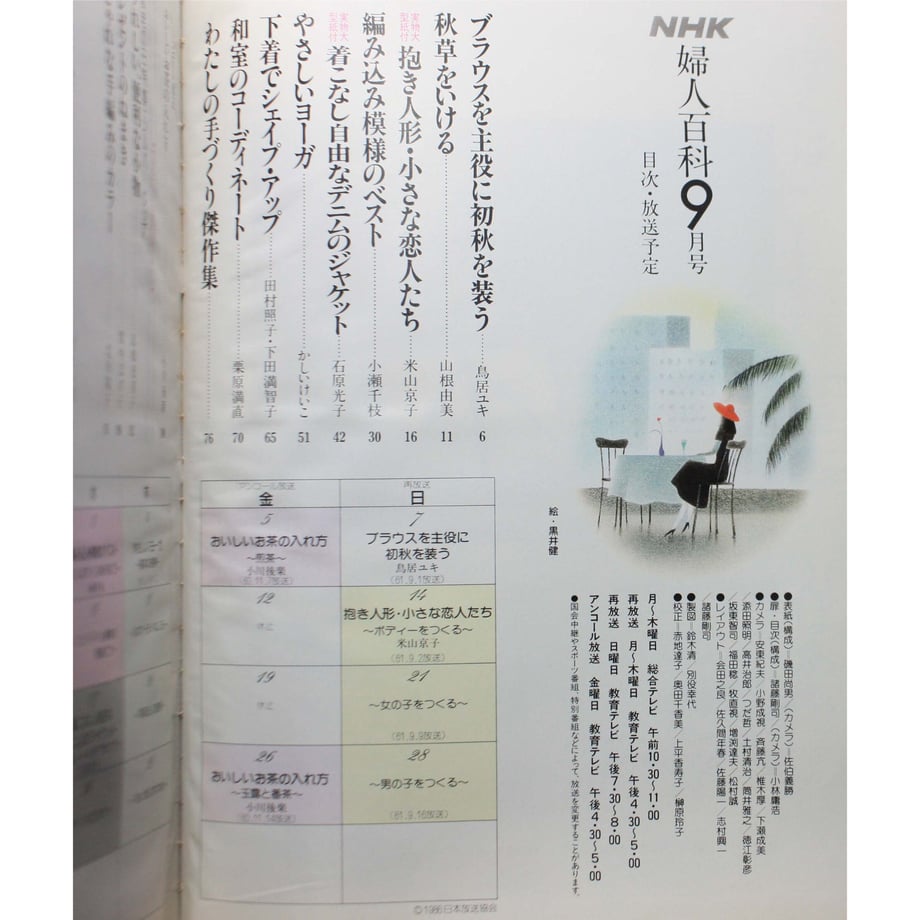 NHK
婦人百科9月号
目次・放送予定
絵・黒井健
ブラウスを主役に初秋を装う 鳥居ユキ 6
秋草をいける 山根由美 11
実物大型紙付 抱き人形・小さな恋人たち 米山京子 16
編み込み模様のベスト 小瀬千枝 30
実物大型紙付 着こなし自由なデニムのジャケット 石原光子 42
やさしいヨーガ かしいけいこ 51
下着でシェイプ・アップ 田村照子・下田満智子 65
和室のコーディネート 栗原満直 70
わたしの手づくり傑作集 76
●表紙(構成)=磯田尚男/(カメラ)=佐伯義勝
●扉・目次(構成)=諸藤剛司/(カメラ)=小林庸浩
●カメラ=安東紀夫/小野成視/斉藤亢/椎木厚/下瀬成美
/添田照明/高井治郎/つだ哲/土村清治/筒井雅之/徳江彰彦
/坂東智司/福田稔/牧直視/増渕達夫/松村誠
●レイアウト=会田之良/佐久間年春/佐藤陽一/志村興一
/諸藤剛司
●製図 鈴木清/別役幸代
●校正=赤地達子/奥田千香美/上平香寿子/榊原玲子
月~木曜日 総合テレビ 午前10・30~11・00
再放送 月~木曜日 教育テレビ 午後4・30~5・00
再放送 日曜日 教育テレビ 午後7・30~8・00
アンコール放送 金曜日 教育テレビ 午後4・30~5・00
●国会中継やスポーツ番組、特別番組などによって、放送を変更することがあります。
アンコール放送
金
再放送
日
5
おいしいお茶の入れ方
~煎茶~
小川後楽
(60.11.7放送)
7
ブラウスを主役に
初秋を装う
鳥居ユキ
(61.9.1放送)
12
休止
14
抱き人形・小さな恋人たち
~ボディーをつくる~
米山京子
(61.9.2放送)
19
休止
21
~女の子をつくる~
(61.9.9放送)
26
おいしいお茶の入れ方
~玉露と番茶~
小川後楽
(60.11.14放送)
28
~男の子をつくる~
(61.9.16放送)
©1986日本放送協会